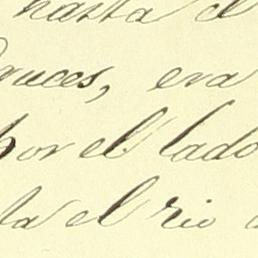 hasta el
ruces, era
por el lado
ta el rio